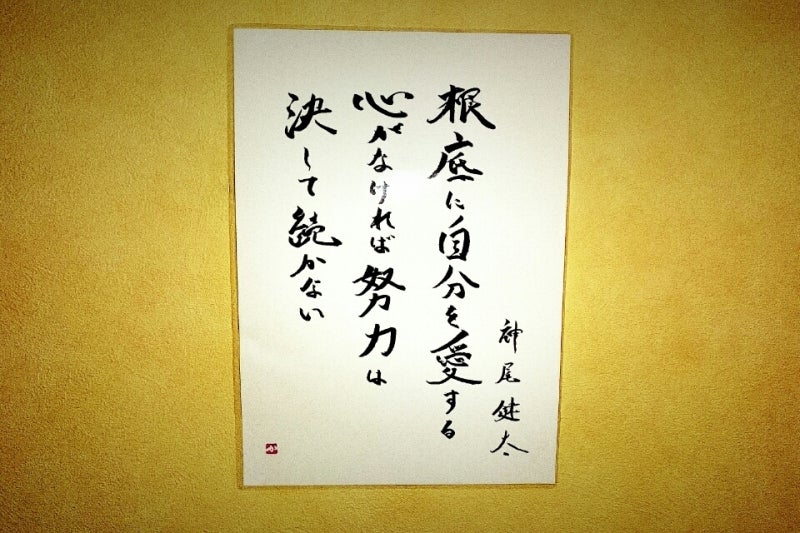 神尾健太
根底に自分を愛する
心がなければ努力は
決して続かない
か